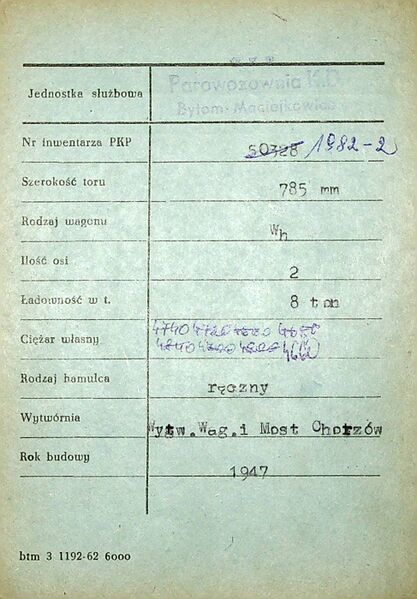 P K P
Jednostka służbowa Parowozownia K.D.
Bytom-Maciejkowice
Nr inwentarza PKP 50328 1982-2
Szerokość toru 785 mm
Rodzaj wagonu Wh
Ilość osi 2
Ładowność w t. 8 ton
Ciężar własny 4740
4660
Rodzaj hamulca ręczny
Wytwórnia Wytw.Wag.i Most Chorzów
Rok budowy 1947
btm 3 1192-62 6000